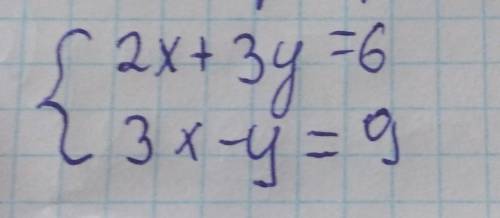 2x + 3y = 6
3x - y = 9